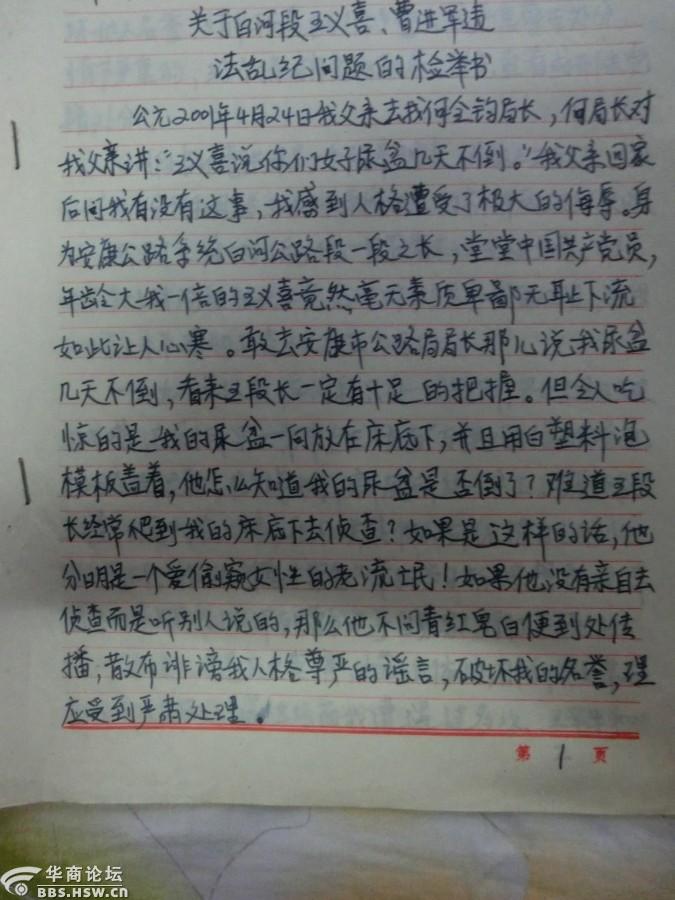 关于白河段王义喜、曹进军违
法乱纪问题的检举书
公元2001年4月24日我父亲去找何全钧局长，何局长对
我父亲讲："王义喜说你们女子尿盆几天不倒。"我父亲回家
后问我有没有这事，我感到人格遭受了极大的侮辱。身
为安康公路系统白河公路段一段之长，堂堂中国共产党员，
年龄全大我一倍的王义喜竟然毫无素质卑鄙无耻下流
如此让人心寒。敢去安康市公路局局长那儿说我尿盆
几天不倒，看来王段长一定有十足的把握。但令人吃
惊的是我的尿盆一向放在床底下，并且用白塑料泡
模板盖着，他怎么知道我的尿盆是否倒了？难道王段
长经常爬到我的床底下去侦查？如果是这样的话，他
分明是一个爱偷窥女性的老流氓！如果他没有亲自去
侦查而是听别人说的，那么他不问青红皂白便到处传
播，散布诽谤我人格尊严的谣言，破坏我的名誉，理
应受到严肃处理。
第1页
华商论坛
BBS.HSW.CN